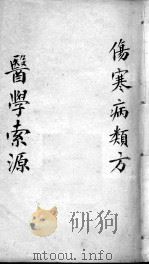 傷寒病類方
醫學索源